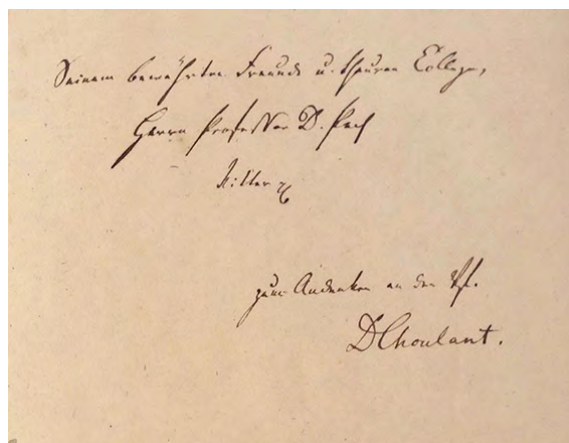 Seinem bewährten Freunde u. theuren Collegen,
Herrn Professor D. Pech
Ritter
zum Andenken an den Vf.
DChoulant.